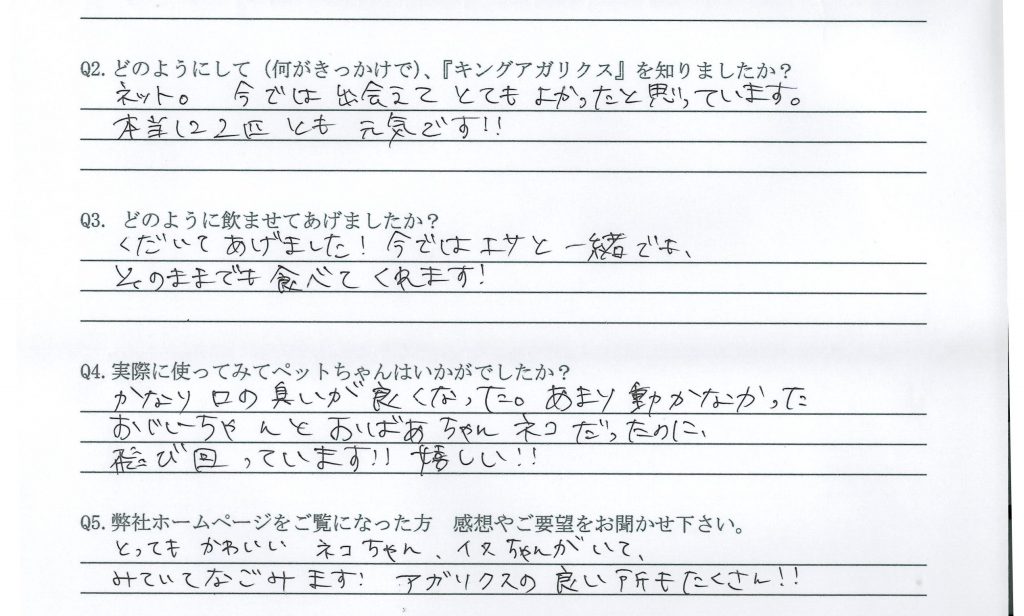 Q2.どのようにして（何がきっかけで）、『キングアガリクス』を知りましたか？
ネット。 今では 出会えて とても よかったと思っています。
本当に2匹とも 元気です!!
Q3. どのように飲ませてあげましたか？
くだいて あげました! 今ではエサと 一緒でも、
そのままでも 食べて くれます!
Q4.実際に使ってみてペットちゃんはいかがでしたか？
かなり 口の 臭いが 良くなった。あまり 動かなかった
おじいちゃんと おばあちゃん ネコ だったのに、
飛び回っています!! 嬉しい!!
Q5.弊社ホームページをご覧になった方　感想やご要望をお聞かせ下さい。
とっても かわいい ネコちゃん、イヌちゃんがいて、
みていてなごみます! アガリクスの 良い所もたくさん!!